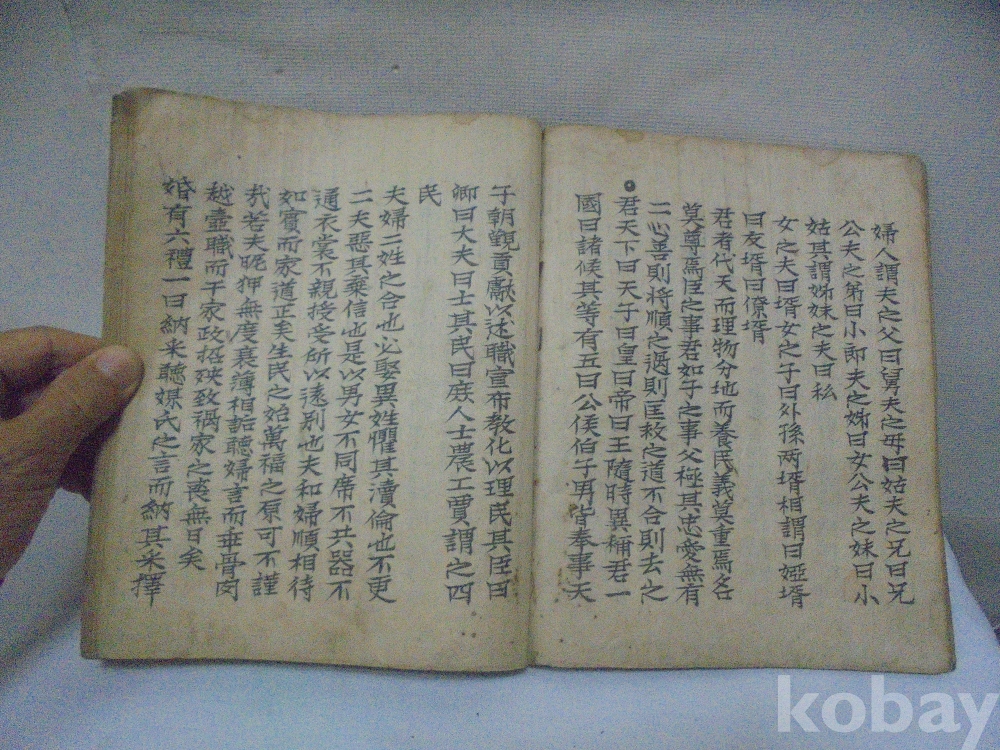 婦人謂夫之父曰舅夫之母曰姑夫之兄曰兄
公夫之弟曰小郎夫之姊曰女公夫之妹曰小
姑其謂姊妹之夫曰私
女之夫曰壻女之子曰外孫两壻相謂曰婭壻
曰友壻曰僚壻
君者代天而理物分地而養民義莫重焉名
莫尊焉臣之事君如子之事父極其忠愛無有
二心善則将順之過則匡救之道不合則去之
君天下曰天子曰皇曰帝曰王隨時異稱君一
國曰諸候其等有五曰公侯伯子男皆奉事天
子朝觀貢獻以述職宣布教化以理民其臣曰
卿曰大夫曰士其民曰庶人士農工賈謂之四
民
夫婦二姓之合也必娶異姓懼其瀆倫也不更
二夫惡其乘信也是以男女不同席不共器不
通衣裳不親授受所以遠別也夫和婦順相待
如賓而家道正矣生民之始萬福之原可不謹
㦲若夫昵押無度衰薄相詬聽婦言而乖骨肉
越壼職而干家政招殃致禍家之喪無日矣
婚有六禮一曰納采聽媒氏之言而納其采擇
kobay